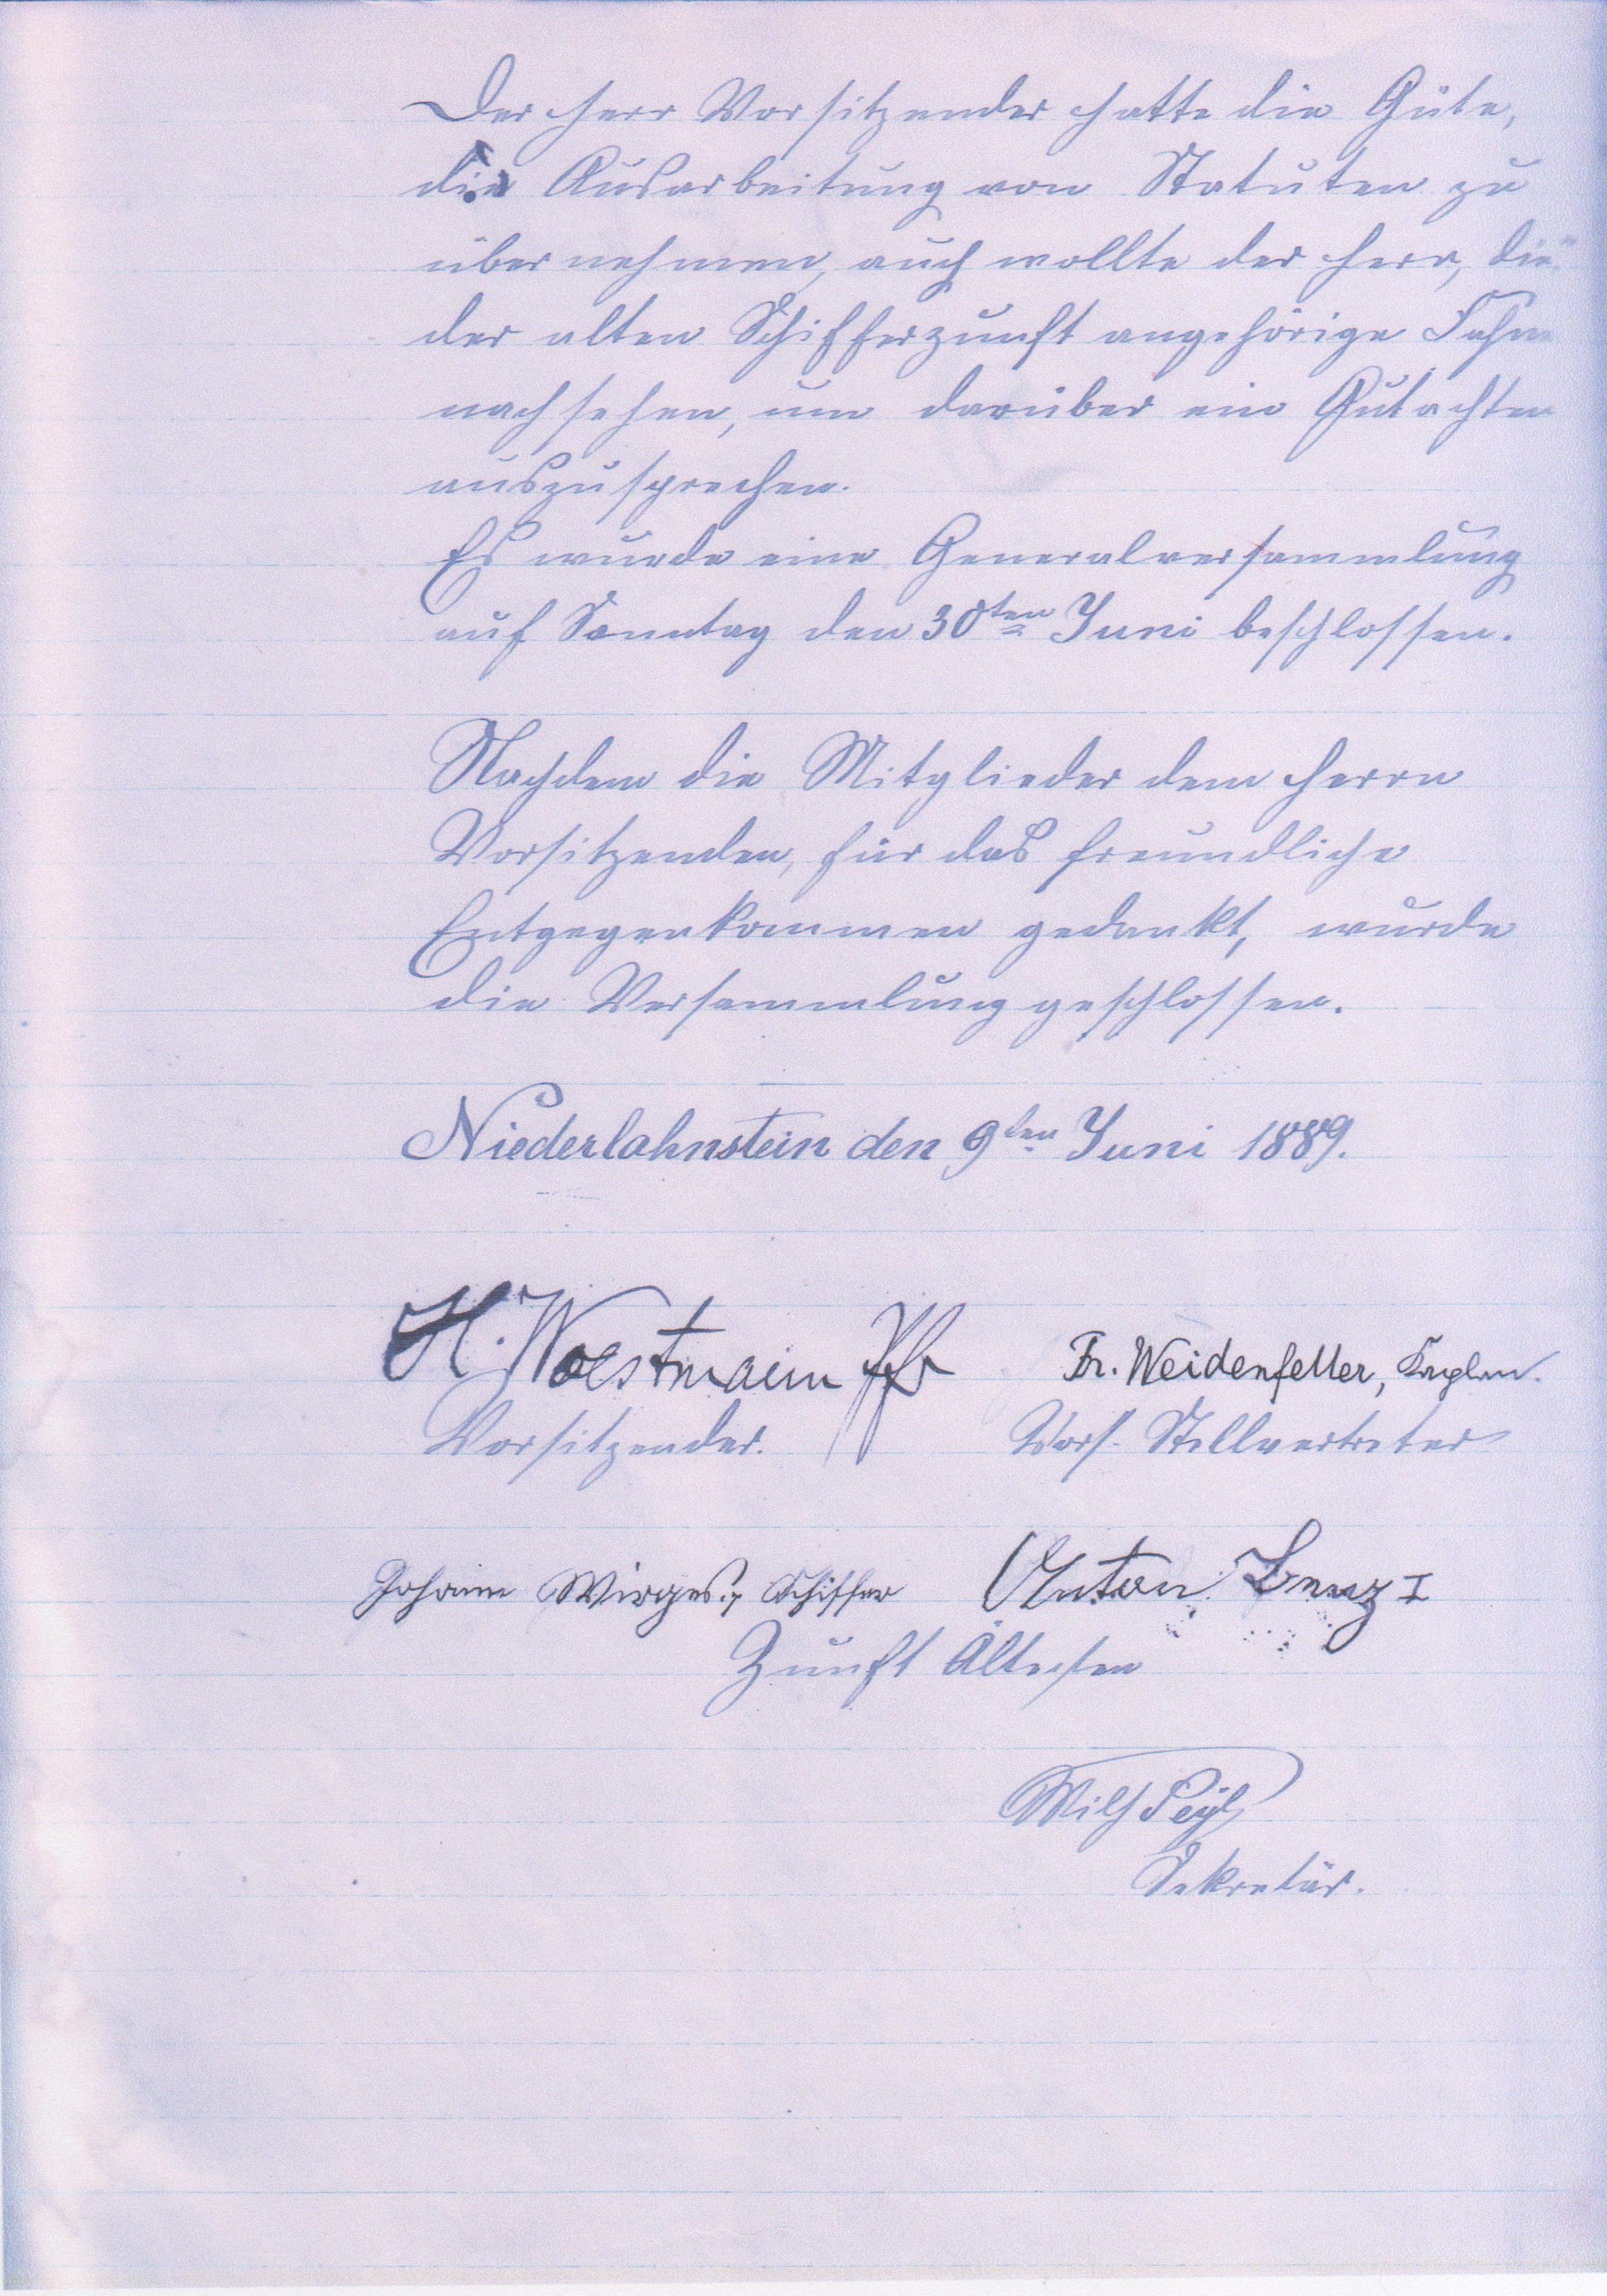 Der Herr Vorsitzender hatte die Güte,
die Ausarbeitung von Statuten zu
übernehmen, auch wollte der Herr, die
der alten Schifferzunft angehörige Fahne
nachsehen, um darüber ein Gutachten
auszusprechen.
Es wurde eine Generalversammlung
auf Sonntag den 30ten Juni beschlossen.
Nachdem die Mitglieder dem Herrn
Vorsitzenden, für das freundliche
Entgegenkommen gedankt, wurde
die Versammlung geschlossen.
Niederlahnstein den 9ten Juni 1889.
H. Woestmann Pfr
Fr. Weidenfeller, Kaplan.
Vorsitzender.
Vors. Stellvertreter
Johann Wirges, Schiffer
Anton Lenz I
Zunft Ältesten
Wilh
Sekretär.